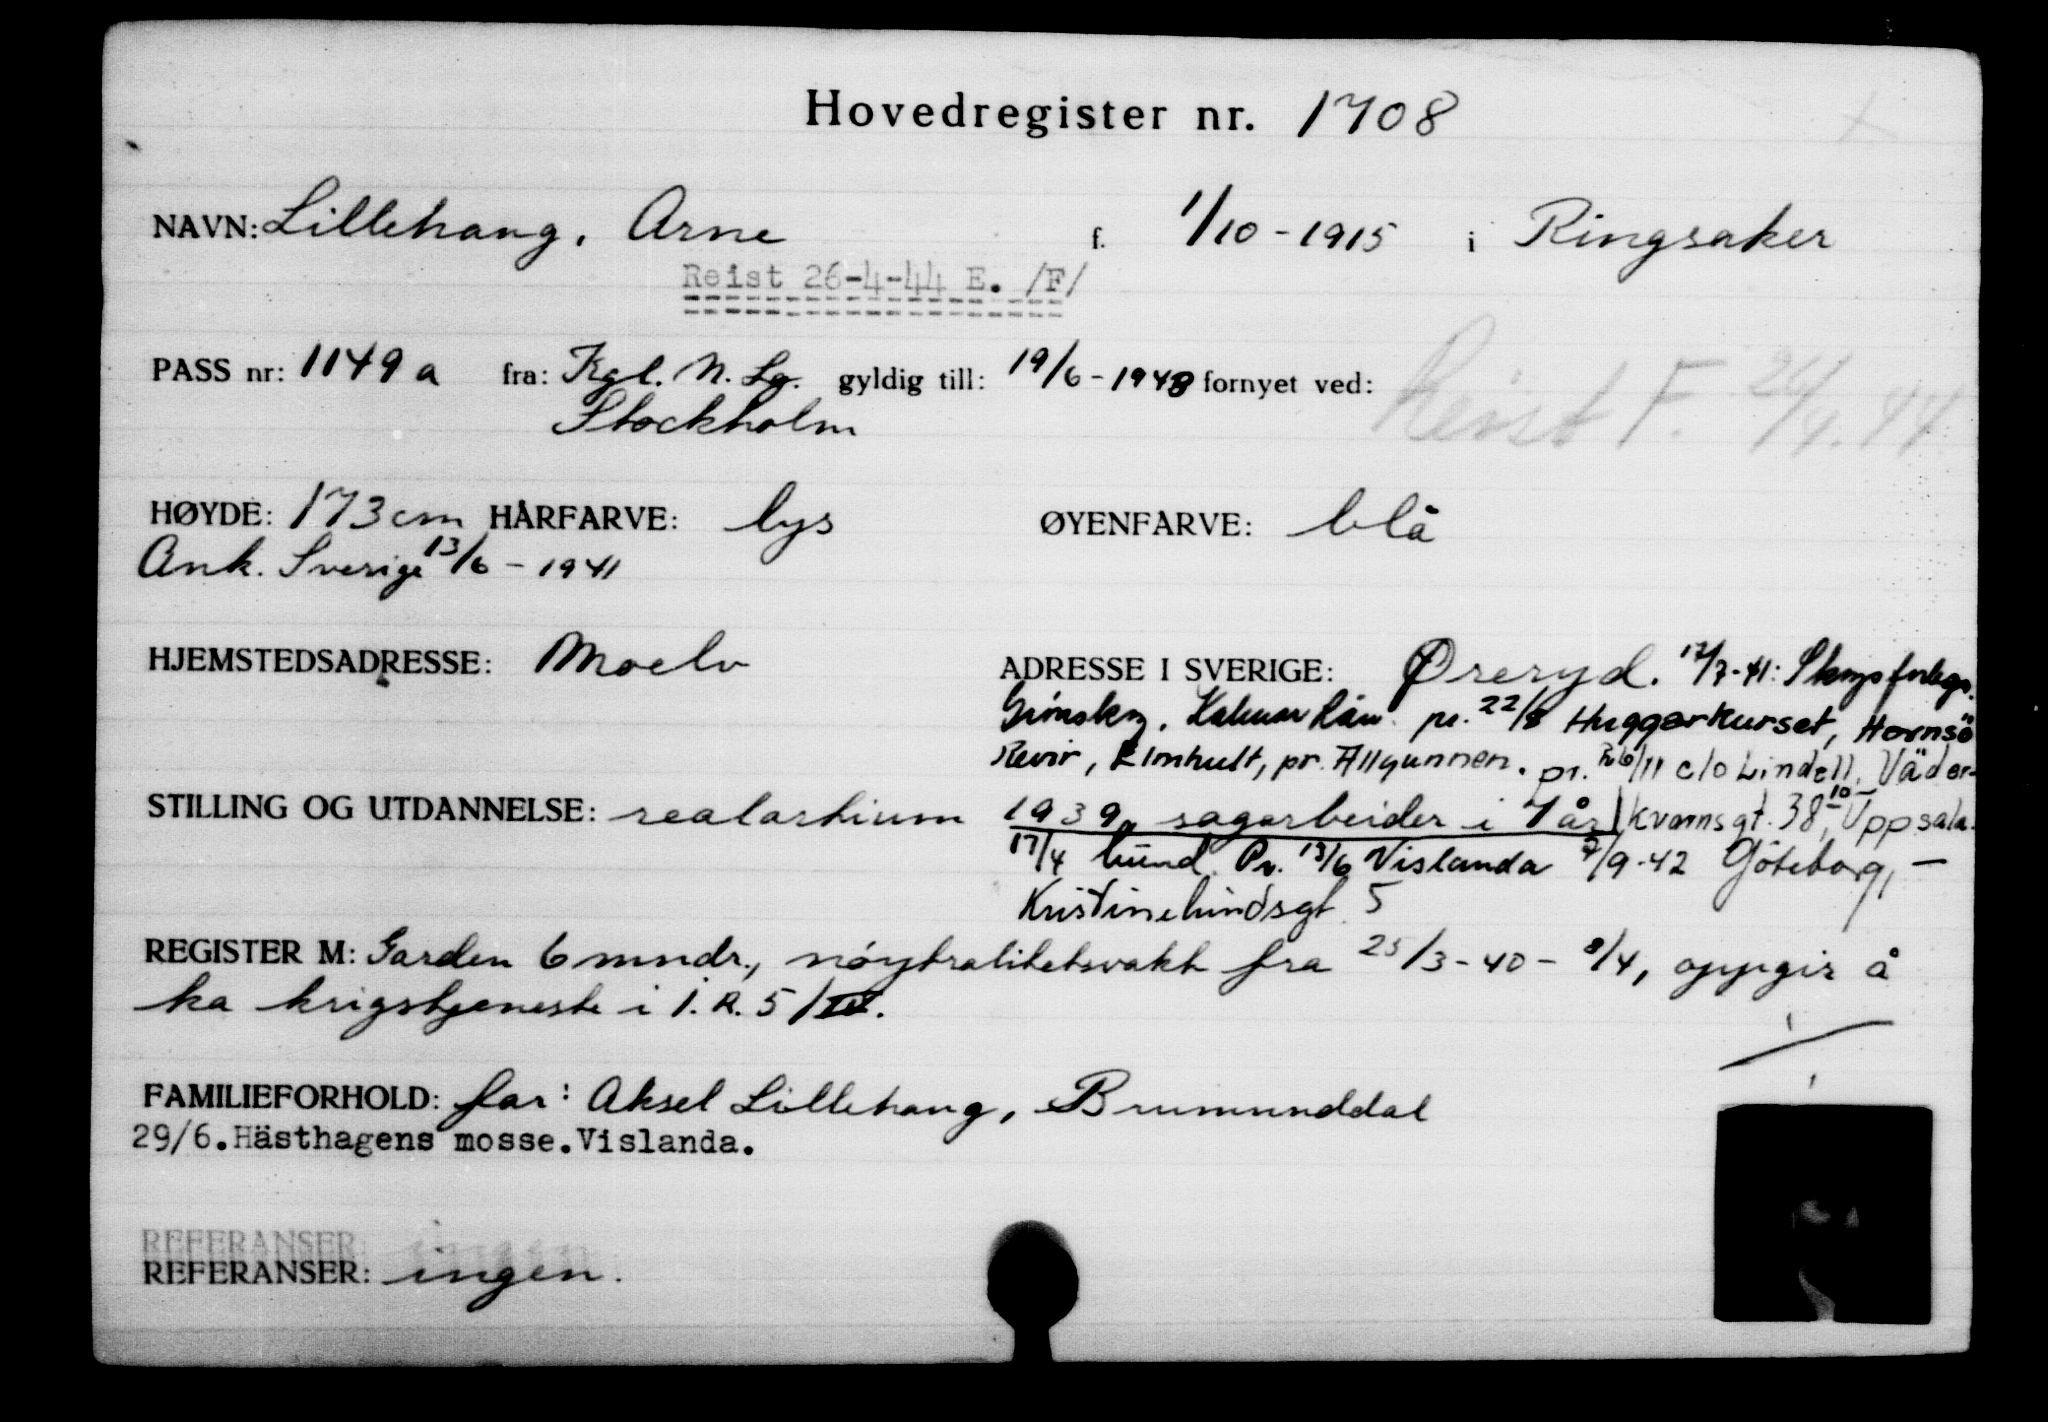 Hovedregister nr. 1708
NAVN: Lillehaug, Arne f. 1/10-1915 i Ringsaker
Reist 26-4-44 E. /F/
PASS nr: 1149a fra: Kgl. N. Lg. Stockholm gyldig till: 19/6-1948 fornyet ved:
Reist F. 26/4.44
HØYDE: 173cm HÅRFARVE: lys ØYENFARVE: blå
Ank. Sverige 13/6-1941
HJEMSTEDSADRESSE: Moelv ADRESSE I SVERIGE: Øreryd. 17/7-41: Skogsforlegn.
Grönskog, Kalmar län. pr. 22/8 Huggarkurset, Hornsö
Revir, Elmhult, pr. Allgunnen. pr. 26/11 c/o Lindell, Väder-
STILLING OG UTDANNELSE: realartium 1939, sagarbeider i 7 år kvarnsgt. 38, 10 Uppsala.
17/4 Lund. Pr. 13/6 Vislanda 2/9-42 Göteborg, -
Kristinelundsgt. 5
REGISTER M: Garden 6 mndr., nøytralitetsvakt fra 25/3-40 - 8/4, oppgir å
ha krigstjeneste i I.R. 5/IV.
FAMILIEFORHOLD: far: Aksel Lillehaug, Brumunddal
29/6. Hästhagens mosse. Vislanda.
REFERANSER: ingen
REFERANSER: ingen.